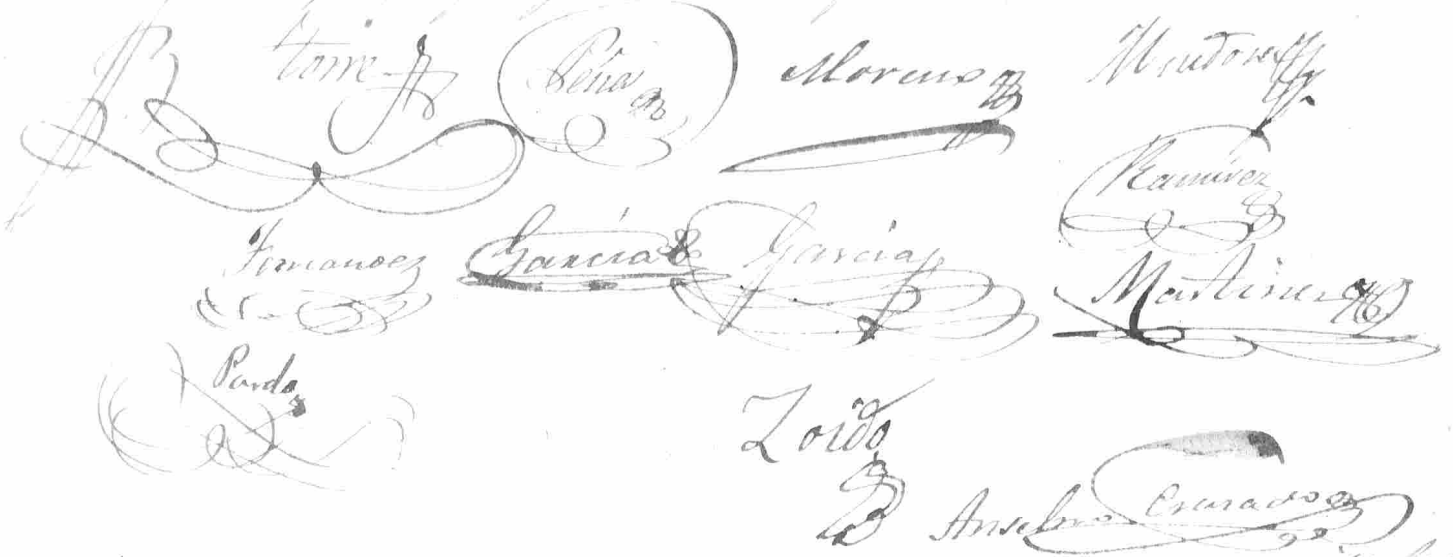 Torre Peña Moreno Mendoza
Ramirez
Fernandez Garcia Garcia
Martinez
Pardo
Zoido
Anselmo